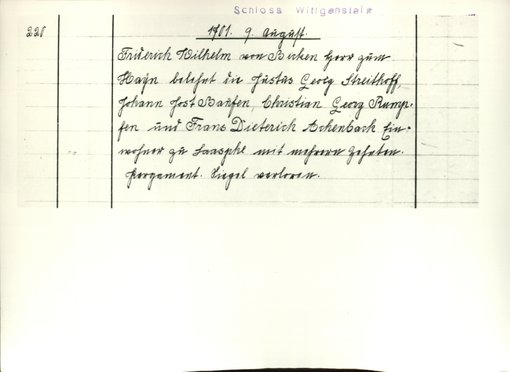 Schloss Wittgenstein
228
1701. 9. August.
Friderich Wilhelm von Bicken Herr zum
Hayn belehnt die Justus Georg Streithoff,
Johann Jost Bathen, Christian Georg Rump-
fen und Frans Dieterich Achenbach Ein-
wohner zu Laasphe mit mehrern Zehnten.
Pergament. Siegel verloren.